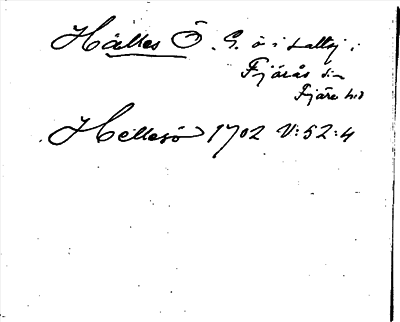 Hålles Ö. G. ö i saltsj. i
Fjärås sn
Fjäre hd
Hellesö 1702 V:52:4